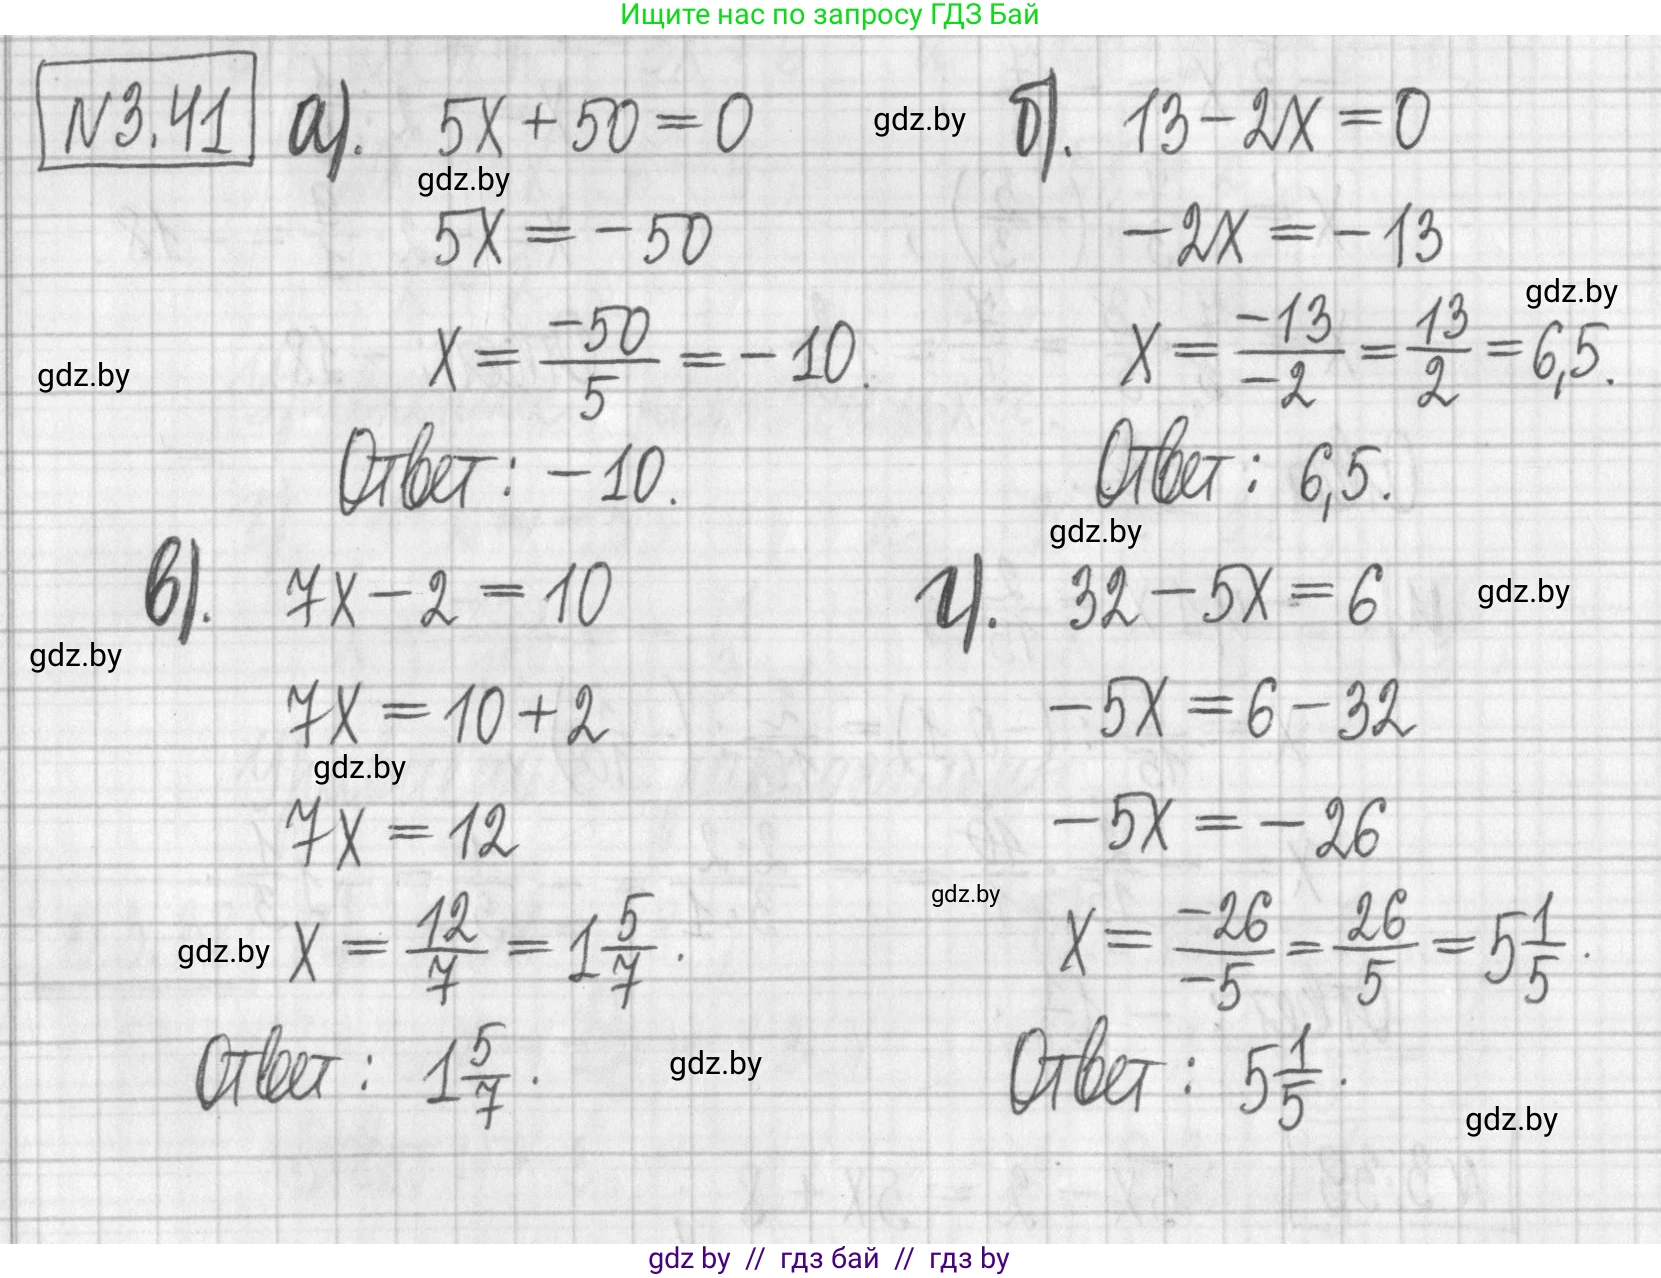 Ищите нас по запросу ГДЗ Бай
N3.41 а). 5x + 50 = 0
gdz.by
5x = -50
x = -50/5 = -10.
gdz.by
Ответ: -10.
gdz.by
б). 13 - 2x = 0
-2x = -13
gdz.by
x = -13/-2 = 13/2 = 6,5.
Ответ: 6,5.
gdz.by
в). 7x - 2 = 10
gdz.by
7x = 10 + 2
gdz.by
7x = 12
gdz.by
x = 12/7 = 1 5/7.
Ответ: 1 5/7.
gdz.by
г). 32 - 5x = 6
gdz.by
-5x = 6 - 32
-5x = -26
gdz.by
x = -26/-5 = 26/5 = 5 1/5.
Ответ: 5 1/5.
gdz.by
gdz by // гдз бай // гдз by